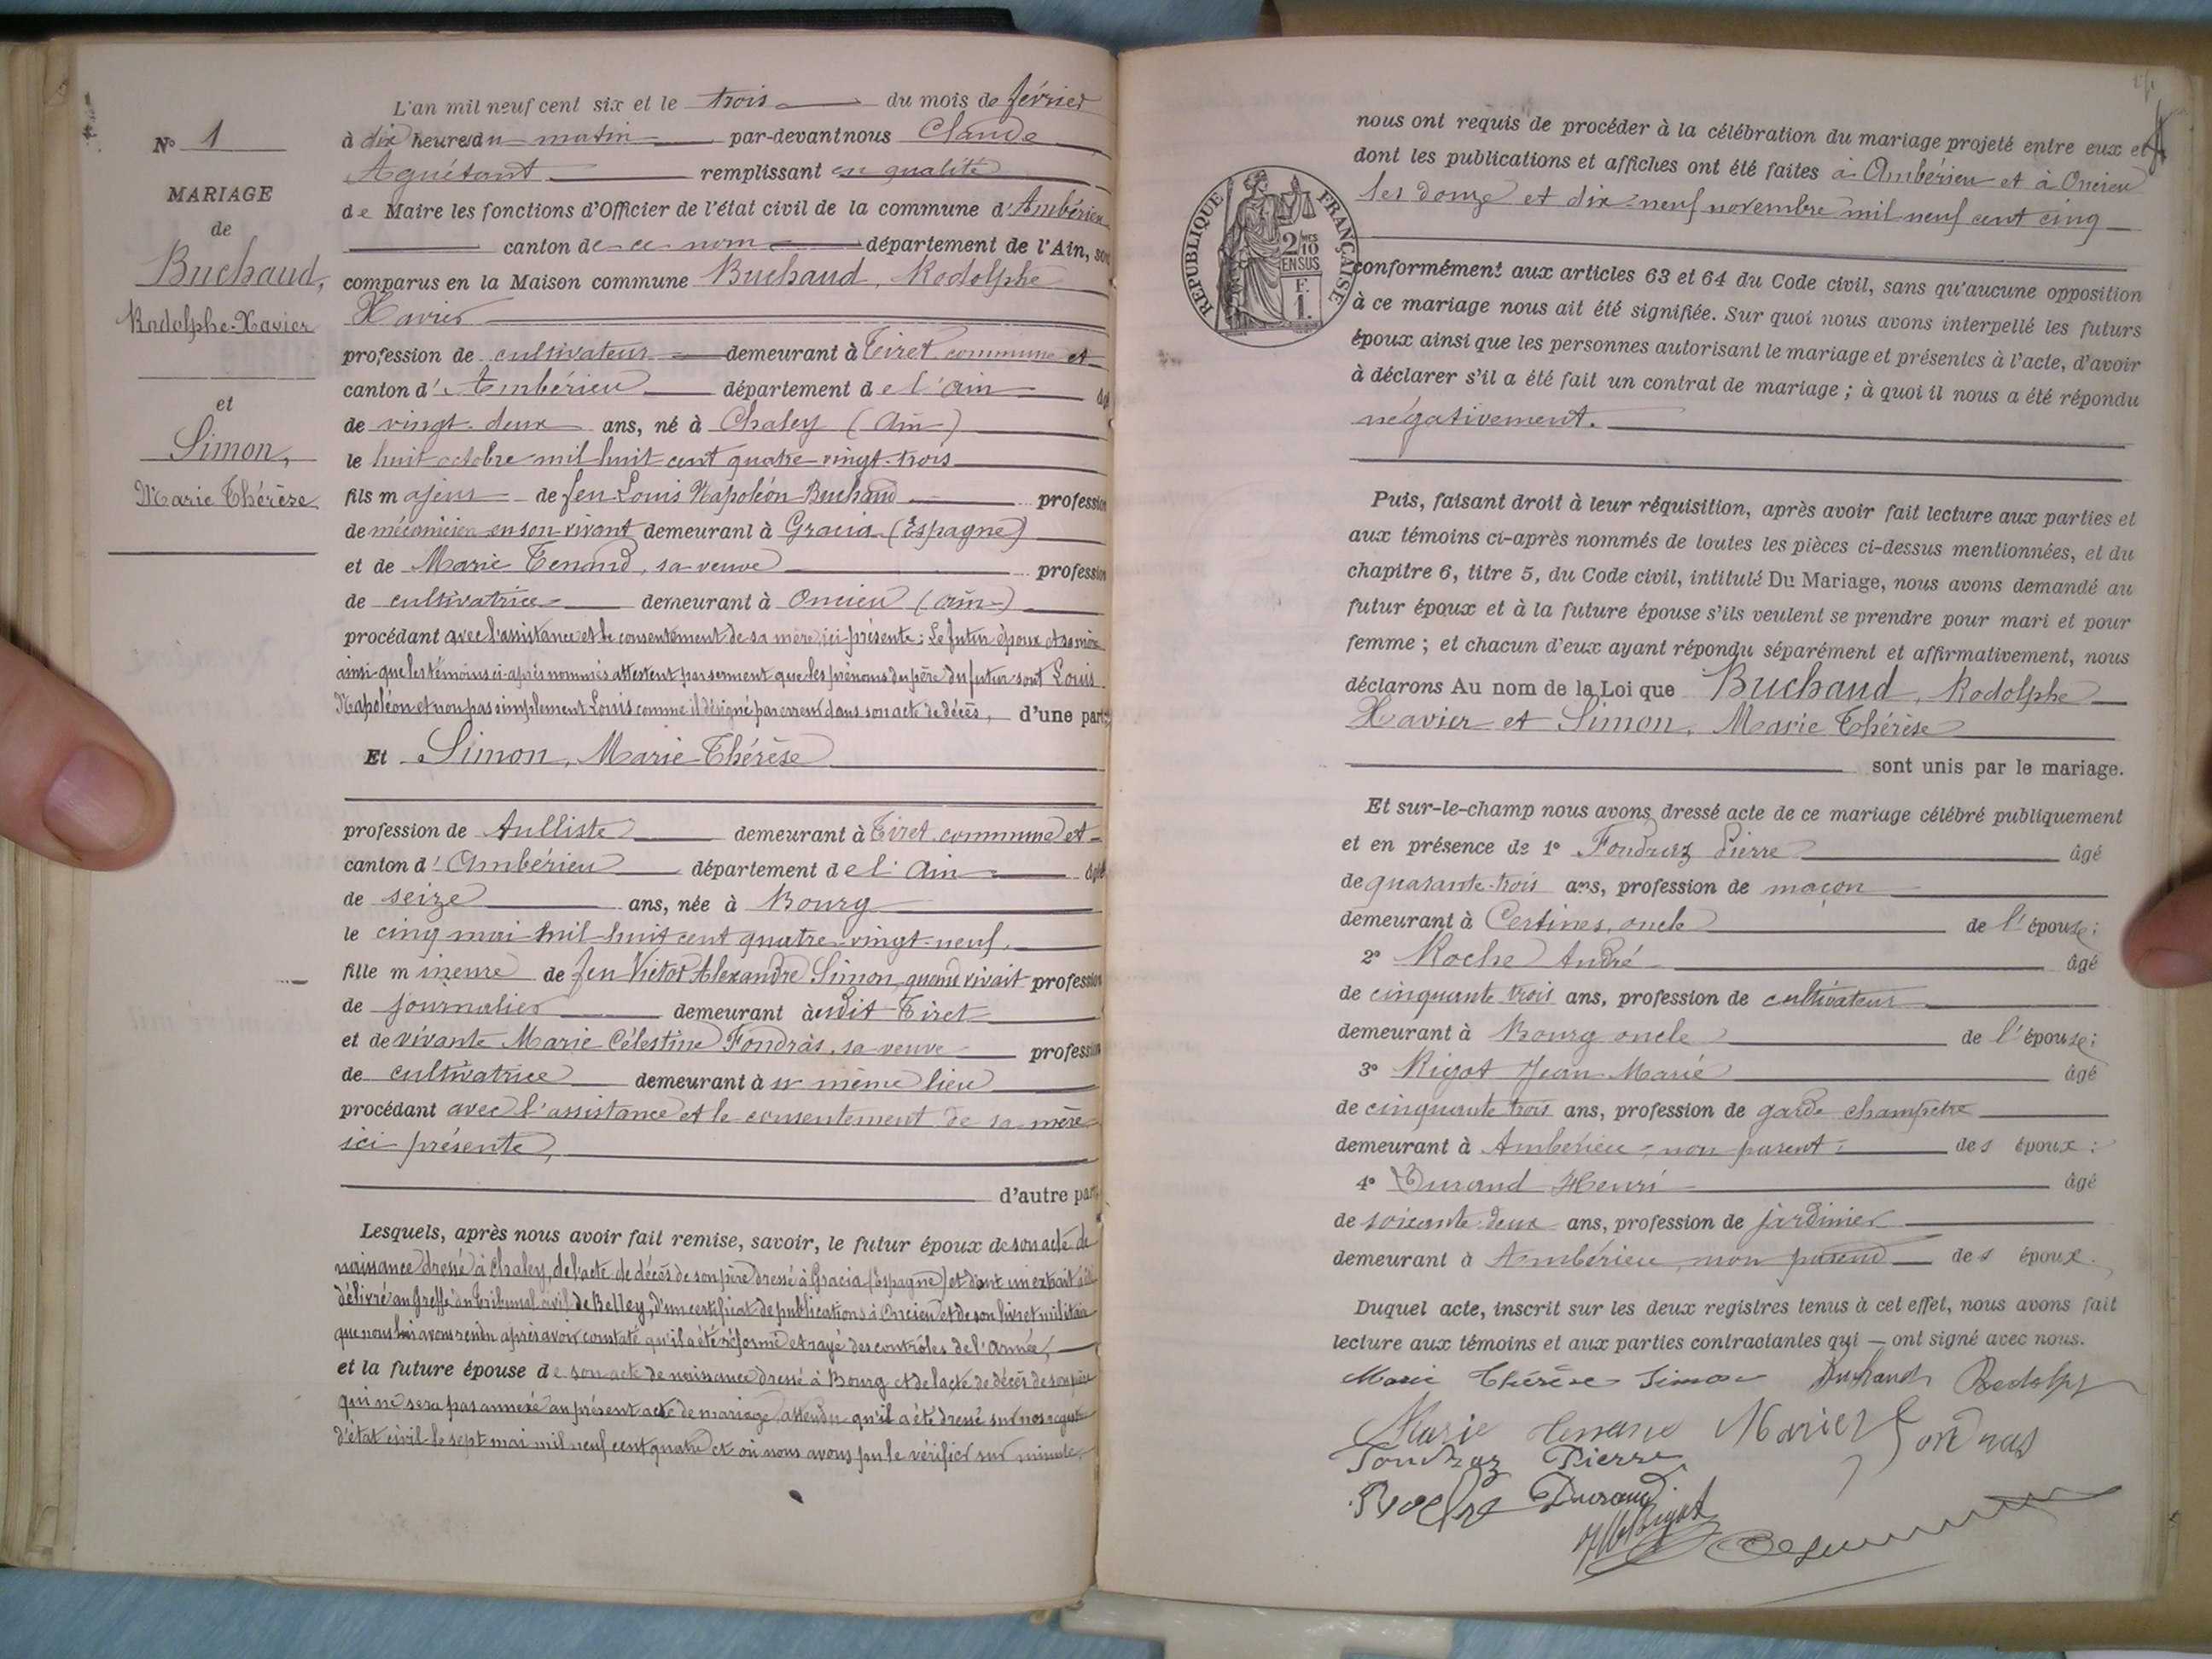 N° 1
MARIAGE
de
Buchaud,
Rodolphe-Xavier
et
Simon,
Marie Thérèse
L'an mil neuf cent six et le trois du mois de février
à dix heures du matin par-devant nous Claude
Aguétant remplissant en qualité
de Maire les fonctions d'Officier de l'état civil de la commune d'Ambérieu
canton de ce nom département de l'Ain, sont
comparus en la Maison commune Buchaud, Rodolphe
Xavier
profession de cultivateur demeurant à Tiret commune et
canton d'Ambérieu département de l'Ain âgé
de vingt-deux ans, né à Chaley (Ain)
le huit octobre mil huit cent quatre-vingt-trois
fils majeur de feu Louis Napoléon Buchaud profession
de mécanicien en son vivant demeurant à Gracia (Espagne)
et de Marie Tenand, sa veuve profession
de cultivatrice demeurant à Oncieu (Ain)
procédant avec l'assistance et le consentement de sa mère ici présente; Le futur époux et sa mère
ainsi que les témoins ci-après nommés attestent par serment que les prénoms du père du futur sont Louis
Napoléon et non pas simplement Louis comme il désigné par erreur dans son acte de décès, d'une part
Et Simon, Marie-Thérèse
profession de Tulliste demeurant à Tiret commune et
canton d'Ambérieu département de l'Ain âgée
de seize ans, née à Bourg
le cinq mai mil huit cent quatre-vingt-neuf,
fille mineure de feu Victor Alexandre Simon, quand vivait profession
de journalier demeurant audit Tiret
et de vivante Marie Célestine Fondràs, sa veuve profession
de cultivatrice demeurant à même lieu
procédant avec l'assistance et le consentement de sa mère
ici présente,
d'autre part
Lesquels, après nous avoir fait remise, savoir, le futur époux de son acte de
naissance dressé à Chaley, de l'acte de décès de son père dressé à Gracia (Espagne) et dont un extrait a été
délivré au Greffe du Tribunal civil de Belley, d'un certificat de publications à Oncieu et de son livret militaire
que nous lui avons rendu après avoir constaté qu'il a été réformé et rayé des contrôles de l'Armée,
et la future épouse de son acte de naissance dressé à Bourg et de l'acte de décès de son père
qui ne sera pas annexé au présent acte de mariage attendu qu'il a été dressé sur nos registres
d'état civil le sept mai mil neuf cent quatre et où nous avons pu le vérifier sur minute.
nous ont requis de procéder à la célébration du mariage projeté entre eux et
dont les publications et affiches ont été faites à Ambérieu et à Oncieu
les douze et dix-neuf novembre mil neuf cent cinq
RÉPUBLIQUE FRANÇAISE
2/10 EN SUS
F. 1.
conformément aux articles 63 et 64 du Code civil, sans qu'aucune opposition
à ce mariage nous ait été signifiée. Sur quoi nous avons interpellé les futurs
époux ainsi que les personnes autorisant le mariage et présentes à l'acte, d'avoir
à déclarer s'il a été fait un contrat de mariage; à quoi il nous a été répondu
négativement.
Puis, faisant droit à leur réquisition, après avoir fait lecture aux parties et
aux témoins ci-après nommés de toutes les pièces ci-dessus mentionnées, et du
chapitre 6, titre 5, du Code civil, intitulé Du Mariage, nous avons demandé au
futur époux et à la future épouse s'ils veulent se prendre pour mari et pour
femme; et chacun d'eux ayant répondu séparément et affirmativement, nous
déclarons Au nom de la Loi que Buchaud, Rodolphe
Xavier et Simon, Marie Thérèse
sont unis par le mariage.
Et sur-le-champ nous avons dressé acte de ce mariage célébré publiquement
et en présence de 1° Fondraz Pierre âgé
de quarante-trois ans, profession de maçon
demeurant à Certines, oncle de l'épouse;
2° Roche André âgé
de cinquante trois ans, profession de cultivateur
demeurant à Bourg oncle de l'épouse;
3° Rigot Jean-Marie âgé
de cinquante trois ans, profession de garde champêtre
demeurant à Ambérieu, non parent des époux:
4° Durand Henri âgé
de soixante-deux ans, profession de jardinier
demeurant à Ambérieu non parent des époux.
Duquel acte, inscrit sur les deux registres tenus à cet effet, nous avons fait
lecture aux témoins et aux parties contractantes qui — ont signé avec nous.
Marie Thérèse Simon Buchaud Rodolphe
Marie Tenand Marie Fondras
Fondraz Pierre
Roche Durand
Rigot